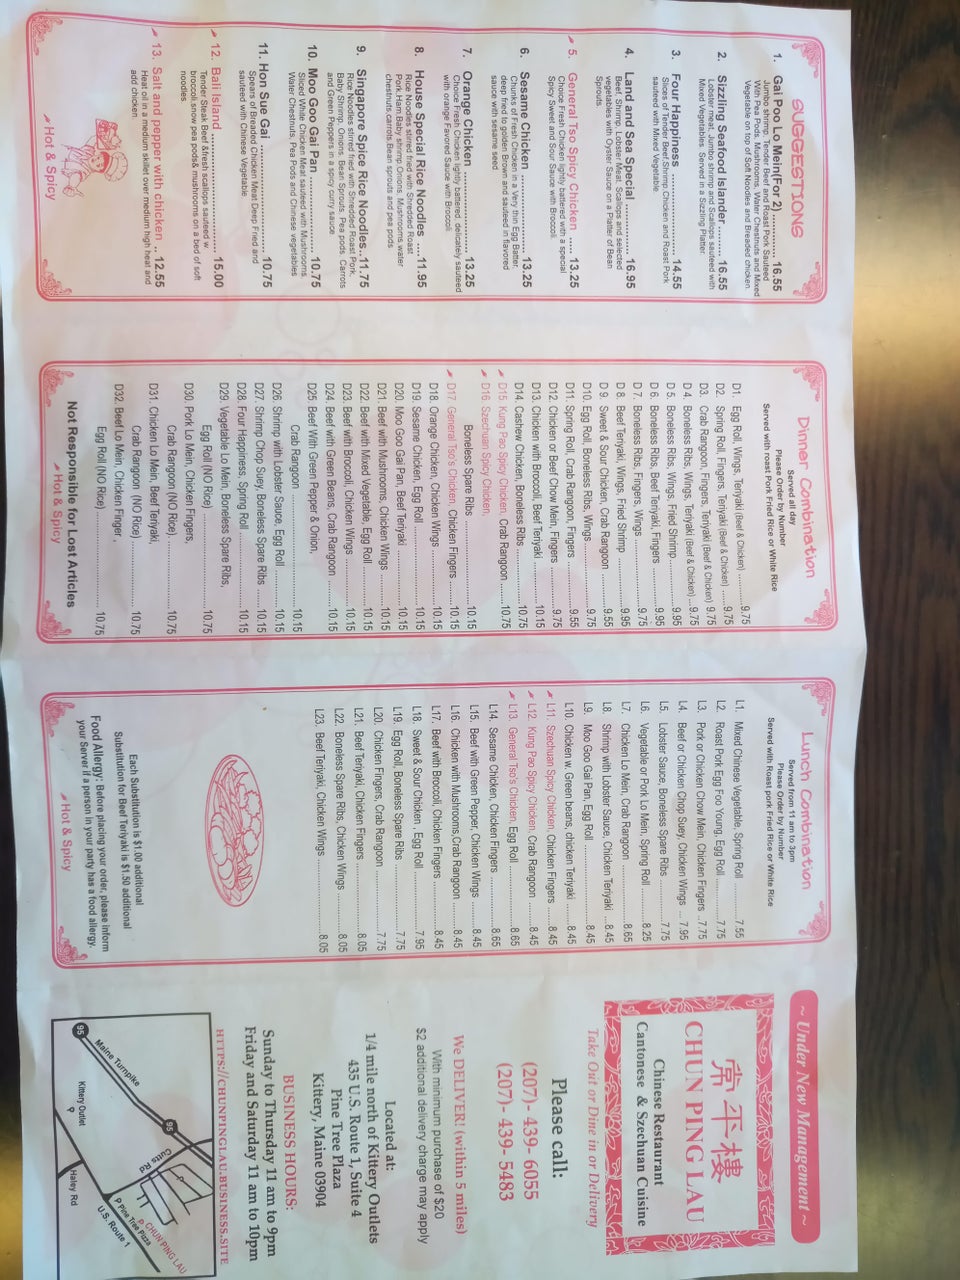 SUGGESTIONS
1. Gai Poo Lo Mein(For 2)........... 16.55
Jumbo shrimp. Tender Beef and Roast Pork Sauteed
With Pea Pods, Mushrooms. Water Chestnuts and Mixed
Vegetable on top of Soft Noodles and Breaded chicken.
2. Sizzling Seafood Islander ........ 16.55
Lobster meat, Jumbo shrimp and Scallops sauteed with
Mixed Vegetables. Served in a Sizzling Platter.
3. Four Happiness ..................... 14.55
Slices of Tender Beef,Shrimp Chicken and Roast Pork
sauteed with Mixed Vegetable.
4. Land and Sea Special ............ 16.95
Beef, Shrimp, Lobster Meat, Scallops and selected
vegetables with Oyster Sauce on a Platter of Bean
Sprouts
5. General Tso Spicy Chicken ..... 13.25
Choice Fresh Chicken lightly battered with a special
Spicy Sweet and Sour Sauce with Broccoli
6. Sesame Chicken .................... 13.25
Chunks of Fresh Chicken in a Very thin Egg Batter.
deep fried to golden Brown and sauteed in flavored
sauce with sesame seed
7. Orange Chicken ..................... 13.25
Choice Fresh Chicken lightly battered, delicately sauteed
with orange Favored Sauce with Broccoli
8. House Special Rice Noodles .... 11.95
Rice Noodles stirred fried with Shredded Roast
Pork.Ham.Baby shrimp.Onions. Mushrooms.water
chestnuts.carrots.Bean sprouts and pea pods
9. Singapore Spice Rice Noodles.. 11.75
Rice Noodles stirred fried with Shredded Roast Pork,
Baby Shrimp. Onions. Bean Sprouts. Pea pods. Carrots
and Green Peppers in a spicy curry sauce
10. Moo Goo Gai Pan ................... 10.75
Sliced White Chicken Meat sauteed with Mushrooms.
Water Chestnuts, Pea Pods and Chinese vegetables
11. Hon Sue Gai ......................... 10.75
Spears of Breaded Chicken Meat Deep Fried and
sauteed with Chinese Vegetable.
12. Bali Island ............................ 15.00
Tender Steak Beef &fresh scallops sauteed w.
broccoli,snow peapods& mushrooms on a bed of soft
noodles
13. Salt and pepper with chicken .. 12.55
Heat oil in a medium skillet over medium high heat and
add chicken
Hot & Spicy
Dinner Combination
Served all day
Please Order by Number
Served with roast Pork Fried Rice or White Rice
D1. Egg Roll, Wings, Teriyaki (Beef & Chicken) ............ 9.75
D2. Spring Roll, Fingers, Teriyaki (Beef & Chicken) ..... 9.75
D3. Crab Rangoon, Fingers, Teriyaki (Beef & Chicken) 9.75
D4. Boneless Ribs, Wings, Teriyaki (Beef & Chicken) ... 9.75
D5. Boneless Ribs, Wings, Fried Shrimp ............. 9.95
D6. Boneless Ribs, Beef Teriyaki, Fingers ............ 9.95
D7. Boneless Ribs, Fingers, Wings .................... 9.75
D8. Beef Teriyaki, Wings, Fried Shrimp ............... 9.95
D9. Sweet & Sour Chicken, Crab Rangoon ......... 9.55
D10. Egg Roll, Boneless Ribs, Wings .................. 9.75
D11. Spring Roll, Crab Rangoon, Fingers ............ 9.55
D12. Chicken or Beef Chow Mein, Fingers .......... 9.75
D13. Chicken with Broccoli, Beef Teriyaki ........... 10.15
D14. Cashew Chicken, Boneless Ribs ............... 10.75
D15 Kung Pao Spicy Chicken, Crab Rangoon ..... 10.75
D16 Szechuan Spicy Chicken,
Boneless Spare Ribs .............................. 10.15
D17. General Tso's Chicken, Chicken Fingers ..... 10.15
D18. Orange Chicken, Chicken Wings ............... 10.15
D19. Sesame Chicken, Egg Roll ...................... 10.15
D20. Moo Goo Gai Pan, Beef Teriyaki ............... 10.15
D21. Beef with Mushrooms, Chicken Wings ........ 10.15
D22. Beef with Mixed Vegetable, Egg Roll .......... 10.15
D23. Beef with Broccoli, Chicken Wings ............. 10.15
D24. Beef with Green Beans, Crab Rangoon ....... 10.15
D25. Beef With Green Pepper & Onion,
Crab Rangoon ..................................... 10.15
D26. Shrimp with Lobster Sauce, Egg Roll .......... 10.15
D27. Shrimp Chop Suey, Boneless Spare Ribs .... 10.15
D28. Four Happiness, Spring Roll .................... 10.15
D29. Vegetable Lo Mein, Boneless Spare Ribs,
Egg Roll (NO Rice) ............................... 10.75
D30 Pork Lo Mein, Chicken Fingers,
Crab Rangoon (NO Rice) ........................ 10.75
D31. Chicken Lo Mein, Beef Teriyaki,
Crab Rangoon (NO Rice) ........................ 10.75
D32. Beef Lo Mein, Chicken Finger ,
Egg Roll (NO Rice) ............................... 10.75
Not Responsible for Lost Articles
Hot & Spicy
Lunch Combination
Served from 11 am to 3pm
Please Order by Number
Served with Roast pork Fried Rice or White Rice
L1. Mixed Chinese Vegetable, Spring Roll ............ 7.55
L2. Roast Pork Egg Foo Young, Egg Roll ............. 7.75
L3. Pork or Chicken Chow Mein, Chicken Fingers .. 7.75
L4. Beef or Chicken Chop Suey, Chicken Wings ... 7.95
L5. Lobster Sauce, Boneless Spare Ribs ............. 7.75
L6. Vegetable or Pork Lo Mein, Spring Roll .......... 8.25
L7. Chicken Lo Mein, Crab Rangoon .................. 8.65
L8. Shrimp with Lobster Sauce, Chicken Teriyaki ... 8.45
L9. Moo Goo Gai Pan, Egg Roll ....................... 8.45
L10. Chicken w. Green beans, chicken Teriyaki ..... 8.45
L11. Szechuan Spicy Chicken, Chicken Fingers .... 8.45
L12. Kung Pao Spicy Chicken, Crab Rangoon ....... 8.45
L13. General Tso's Chicken, Egg Roll ................ 8.65
L14. Sesame Chicken, Chicken Fingers .............. 8.65
L15. Beef with Green Pepper, Chicken Wings ....... 8.45
L16. Chicken with Mushrooms,Crab Rangoon ....... 8.45
L17. Beef with Broccoli, Chicken Fingers ............ 8.45
L18. Sweet & Sour Chicken , Egg Roll ................ 7.95
L19. Egg Roll, Boneless Spare Ribs .................. 7.75
L20. Chicken Fingers, Crab Rangoon ................ 7.75
L21. Beef Teriyaki, Chicken Fingers .................. 8.05
L22. Boneless Spare Ribs, Chicken Wings .......... 8.05
L23. Beef Teriyaki, Chicken Wings ................... 8.05
Each Substitution is $1.00 additional
Substitution for Beef Teriyaki is $1.50 additional
Food Allergy: Before placing your order, please inform
your Server if a person in your party has a food allergy.
Hot & Spicy
~ Under New Management ~
常平樓
CHUN PING LAU
Chinese Restaurant
Cantonese & Szechuan Cuisine
Take Out or Dine in or Delivery
Please call:
(207)- 439- 6055
(207)- 439- 5483
We DELIVER! (within 5 miles)
With minimum purchase of $20
$2 additional delivery charge may apply
Located at:
1/4 mile north of Kittery Outlets
435 U.S. Route 1, Suite 4
Pine Tree Plaza
Kittery, Maine 03904
BUSINESS HOURS:
Sunday to Thursday 11 am to 9pm
Friday and Saturday 11 am to 10pm
HTTPS://CHUNPINGLAU.BUSINESS.SITE
95
Maine Turnpike
95
Cutts Rd
CHUN PING LAU
Pine Tree Plaza
U.S. Route 1
Kittery Outlet
Haley Rd